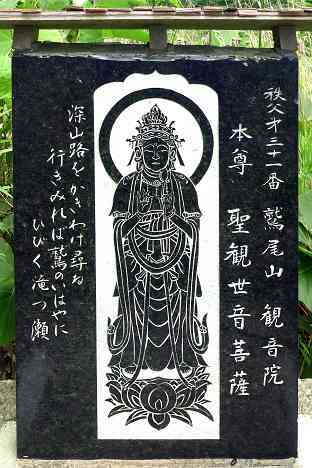 秩父才三十一番 鷲尾山 観音院
本尊 聖観世音菩薩
深山路を かきわけ尋ね
行きみれば 鷲のいはやに
ひびく滝つ瀬